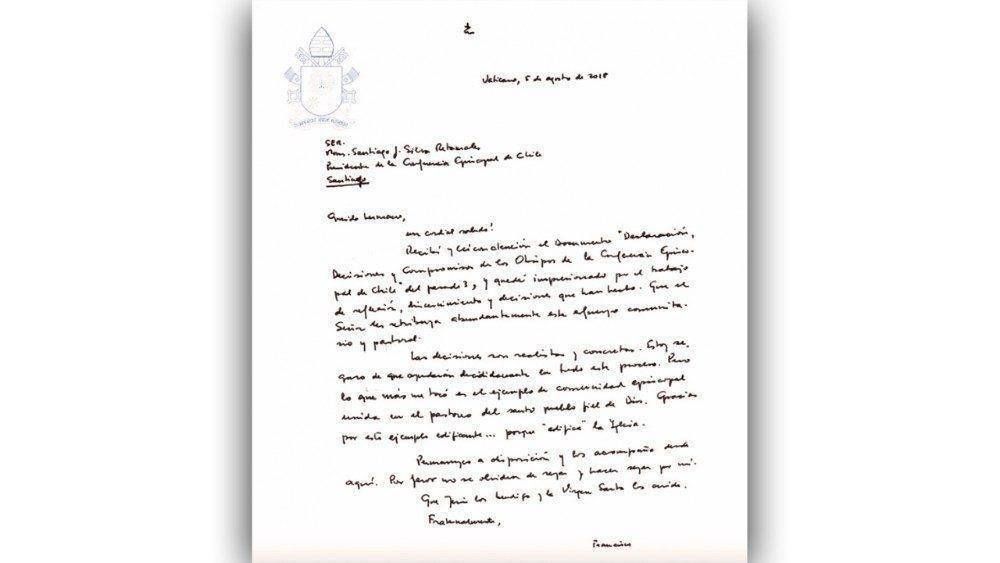 Vaticano, 5 de agosto de 2018
SER.
Mons. Santiago J. Silva Retamales
Presidente de la Conferencia Episcopal de Chile
Santiago
Querido hermano,
un cordial saludo!
Recibí y leí con atención el Documento "Declaración,
Decisiones y Compromisos de los Obispos de la Conferencia Episco-
pal de Chile" del pasado 3, y quedé impresionado por el trabajo
de reflexión, discernimiento y decisiones que han hecho. Que el
Señor les retribuya abundantemente este esfuerzo comunita-
rio y pastoral.
Las decisiones son realistas y concretas. Estoy se-
guro de que ayudarán decididamente en todo este proceso. Pero
lo que más me tocó es el ejemplo de comunidad episcopal
unida en el pastoreo del santo pueblo fiel de Dios. Gracias
por este ejemplo edificante... porque "edifica" la Iglesia.
Permanezco a disposición y los acompaño desde
aquí. Por favor no se olviden de rezar y hacer rezar por mí.
Que Jesús los bendiga y la Virgen Santa los cuide.
Fraternalmente,
Francisco